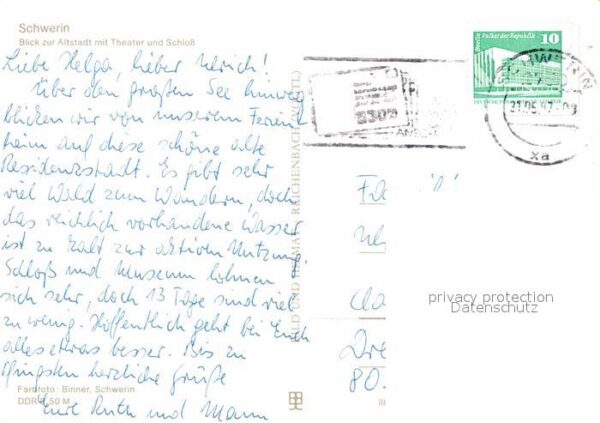 Schwerin
Blick zur Altstadt mit Theater und Schloß
Liebe Helga, lieber Ulrich!
Über den großen See hinweg
blicken wir von unserem Ferien-
heim auf diese schöne alte
Residenzstadt. Es gibt sehr
viel Wald zum Wandern, doch
das reichlich vorhandene Wasser
ist zu kalt zur aktiven Nutzung.
Schloß und Museum lohnen
sich sehr, doch 13 Tage sind viel
zu wenig. Hoffentlich geht bei Euch
alles etwas besser. Bis zu
Pfingsten herzliche Grüße
Eure Ruth und Mann
Farbfoto: Binner, Schwerin
DDR 50 M
BILD UND HEIMAT REICHENBACH
Berlin Palast der Republik
10
SCHWERIN
xa
Fa
Dre
80.
privacy protection
Datenschutz